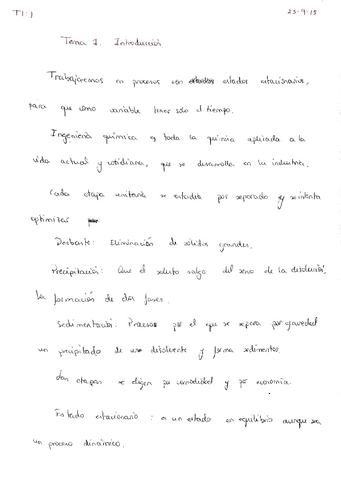 T1:1
23-9-15
Tema 1. Introducción
Trabajaremos en procesos con estados estacionarios,
para que como variable tener solo el tiempo.
Ingeniería química es toda la química aplicada a la
vida actual y cotidiana, que se desarrolla en la industria.
Cada etapa unitaria se estudia por separado y se intenta
optimizar
Desbaste: Eliminación de sólidos grandes.
Precipitación: Que el soluto salga del seno de la disolución,
la formación de dos fases.
Sedimentación: Proceso por el que se separa por gravedad
un precipitado de un disolvente y forma sedimentos.
Las etapas se eligen por comodidad y por economía.
Estado estacionario: es un estado en equilibrio aunque sea
un proceso dinámico.